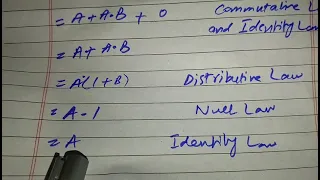 = A + A·B + 0 Commutative L
and Identity Law
= A + A·B
= A(1+B) Distributive Law
= A·1 Null Law
= A Identity Law